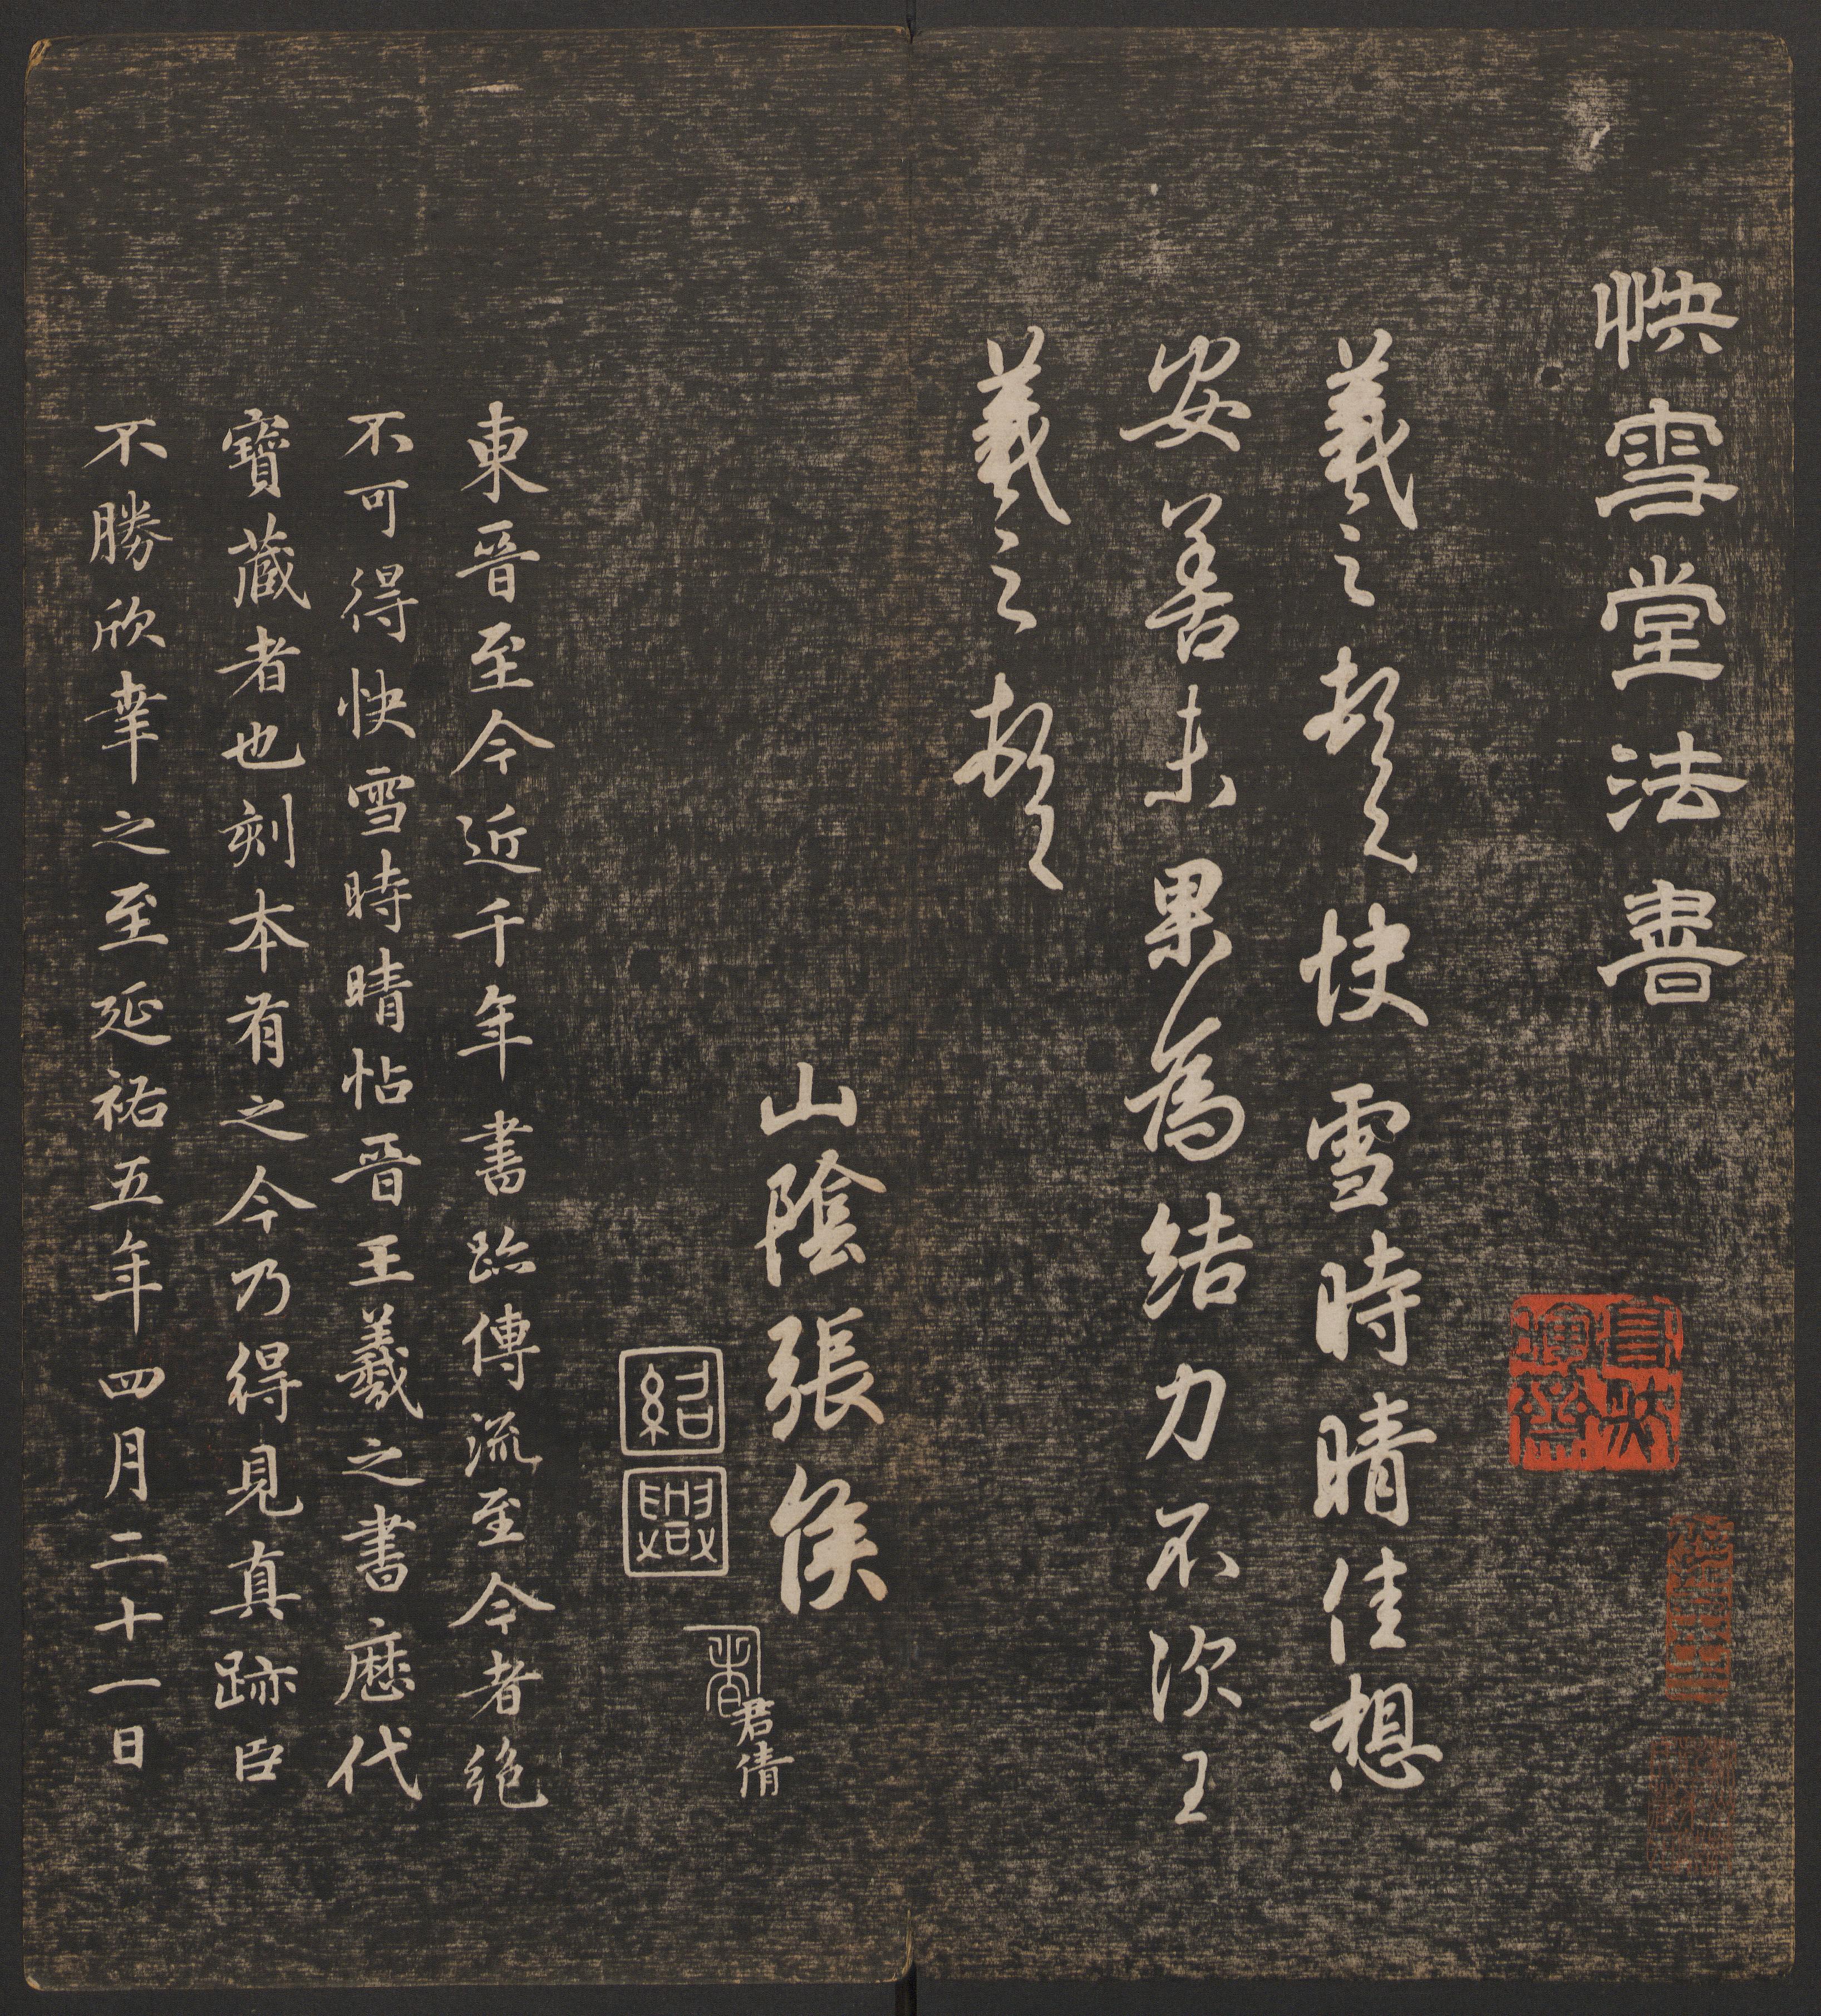 快雪堂法書
羲之頓首快雪時晴佳想
安善未果為結力不次王
羲之頓首
山陰張侯
紹興
君倩
東晉至今近千年書跡傳流至今者絶
不可得快雪時晴帖晉王羲之書歷代
寶藏者也刻本有之今乃得見真跡臣
不勝欣幸之至延祐五年四月二十一日